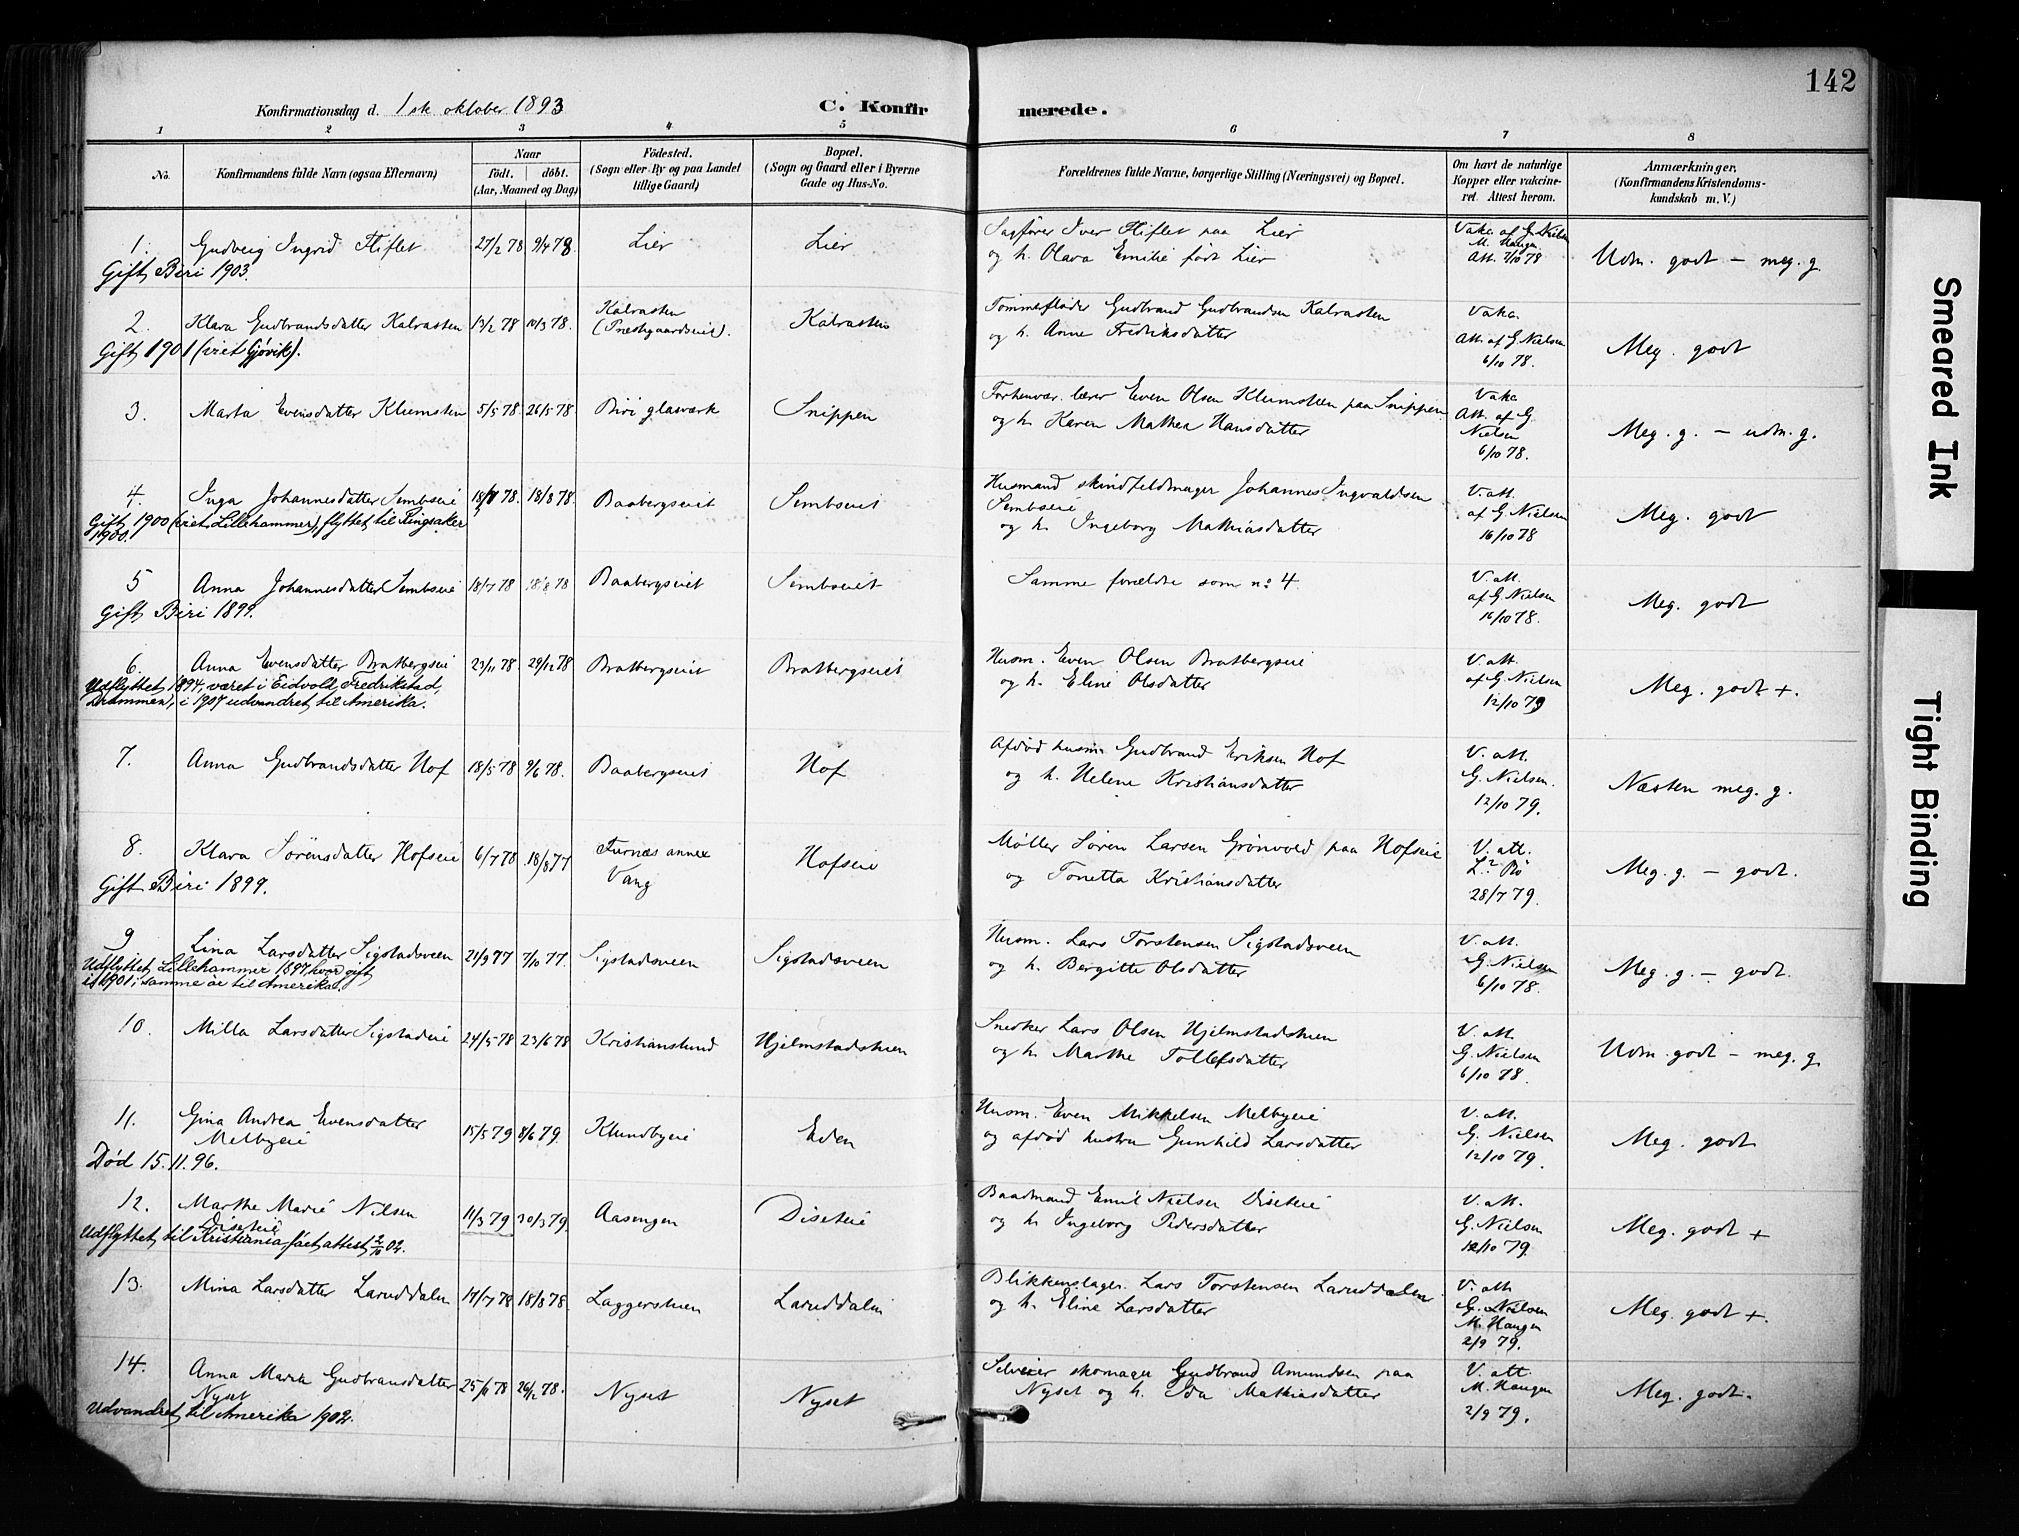 142
Konfirmationsdag d. 1ste oktober 1893
C. Konfirmerede.
1 2 3 4 5 6 7 8
No.
Konfirmandens fulde Navn (ogsaa Efternavn)
Naar
födt. döbt.
(Aar, Maaned og Dag)
Födested.
(Sogn eller By og paa Landet
tillige Gaard)
Bopæl.
(Sogn og Gaard eller i Byerne
Gade og Hus-No.
Forældrenes fulde Navne, borgerlige Stilling (Næringsvei) og Bopæl.
Om havt de naturlige
Kopper eller vakcine-
ret. Attest herom.
Anmærkninger.
(Konfirmandens Kristendoms-
kundskab m. V.)
1. Gudveig Ingrid Fliflet 27/2 78 9/4 78 Lier Lier
Gift, Biri 1903.
Sagfører Iver Fliflet paa Lier
og h. Olava Emilie født Lier
Vakc. af G. Nielsen
M. Haugen
Att. 7/10 78
Udm. godt - meg. g.
2. Klara Gudbrandsdatter Kalrasten 13/2 78 10/3 78. Kalrasten
(Præstegaardseiet). Kalrasten
Gift 1901 (viet Gjøvik).
Tømmerflöder Gudbrand Gudbrandsen Kalrasten
og h. Anne Fredriksdatter
Vakc.
Att. af G. Nielsen
6/10 78.
Meg. godt
3. Marta Evensdatter Klumsten 5/5 78. 26/5 78. Biri glasværk Snippen
Forhenvær. lærer Even Olsen Klumsten paa Snippen
og h. Karen Mathea Hansdatter
Vakc.
Att. af G.
Nielsen
6/10 78.
Meg. g. - udm. g.
4. Inga Johannesdatter Sembseie 18/7 78. 18/8 78. Baabergseiet Sembseiet
Gift 1900 (viet Lillehammer), flyttet til Ringsaker
1900.
Husmand skindfeldmager Johannes Ingvaldsen
Sembseie
og h. Ingeborg Mathiasdatter
V. att.
af G. Nielsen
16/10 78
Meg. godt
5 Anna Johannesdatter Sembseie 18/7 78 18/8 78 Baabergseiet Sembseiet
Gift Biri 1899.
Samme forældre som no 4
V. att.
af G. Nielsen
16/10 78.
Meg. godt
6. Anna Evensdatter Bratbergseie 23/11 78. 29/12 78 Bratbergseiet Bratbergseiet
Udflyttet 1894, været i Eidvold, Fredrikstad,
Drammen, i 1907 udvandret til Amerika.
Husm. Even Olsen Bratbergseie
og h. Eline Olsdatter
V. att.
af G. Nielsen
12/10 79
Meg. godt +.
7. Anna Gudbrandsdatter Hof 18/5 78 9/6 78. Baabergseiet Hof
Afdød husm. Gudbrand Eriksen Hof
og h. Helene Kristiansdatter
V. att.
G. Nielsen.
12/10 79.
Næsten meg. g.
8. Klara Sörensdatter Hofseie 6/7 78 18/8 77 Furnæs annex
Vang Hofseie
Gift Biri 1899.
Møller Sören Larsen Grönvold paa Hofseie
og Tonetta Kristiansdatter
V. att.
28/7 79.
Meg. g. - godt.
9 Lina Larsdatter Sigstadsveen 21/9 77 7/10 77. Sigstadsveen Sigstadsveen
Udflyttet Lillehammer 1897, hvor gift
i 1901, i samme år til Amerika.
Husm. Lars Torstensen Sigstadsveen
og h. Bergitte Olsdatter
V. att.
G. Nielsen
6/10 78.
Meg. g. - godt.
10. Milla Larsdatter Sigstadeie 24/5 78 23/6 78 Kristianslund Hjelmstadstuen
Snedker Lars Olsen Hjelmstadstuen
og h. Marthe Tollefsdatter
V. att.
G. Nielsen
6/10 78.
Udm. godt - meg. g.
11. Gina Andrea Evensdatter
Melbyeie 15/5 79 8/6 79. Klundbyeie Eden
Død 15.11.96.
Husm. Even Mikkelsen Melbyeie
og afdød hustru Gunhild Larsdatter
V. att.
G. Nielsen
12/10 79.
Meg. godt
12. Marthe Marie Nilsen
Diseteie 11/3 79 30/3 79. Aasengen Diseteie
Udflyttet til Kristiania, fået attest 2/10 02.
Baadmand Emil Nielsen Diseteie
og h. Ingeborg Pedersdatter
V. att.
G. Nielsen
12/10 79.
Meg. godt +
13. Mina Larsdatter Laruddalen 17/7 78 18/8 78. Laggerstuen Laruddalen
Blikkenslager Lars Torstensen Laruddalen
og h. Eline Larsdatter
V. att.
G. Nielsen
M. Haugen
2/9 79.
Meg. godt +.
14. Anna Marie Gudbransdatter
Nyset 25/11 78 26/12 78. Nyset Nyset
Udvandret til Amerika 1902.
Selveier skomager Gudbrand Amundsen paa
Nyset og h. Ida Mathiasdatter
V. att
M. Haugen
2/9 79.
Meg. godt.
Smeared Ink
Tight Binding